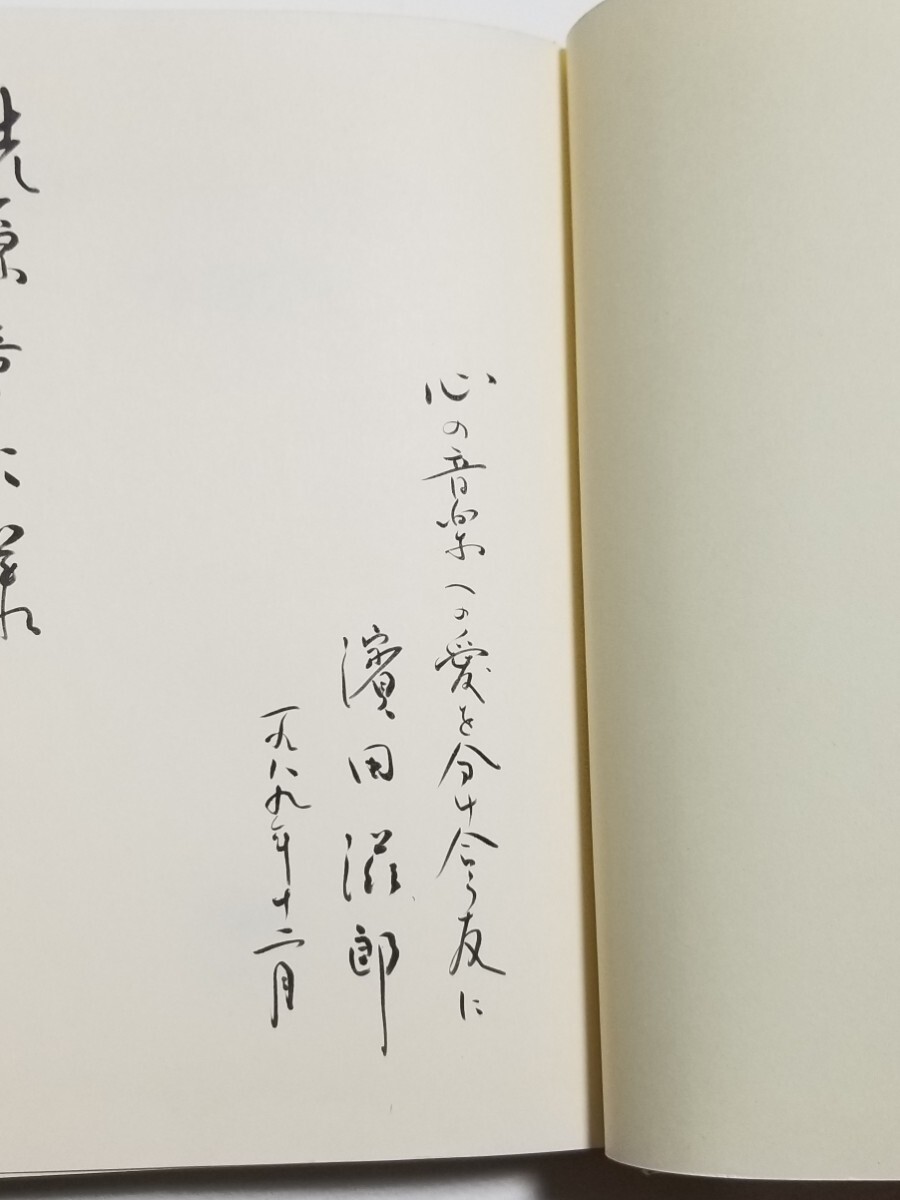 心の音楽への愛を分け合う友に
濱田滋郎
一九八九年十二月